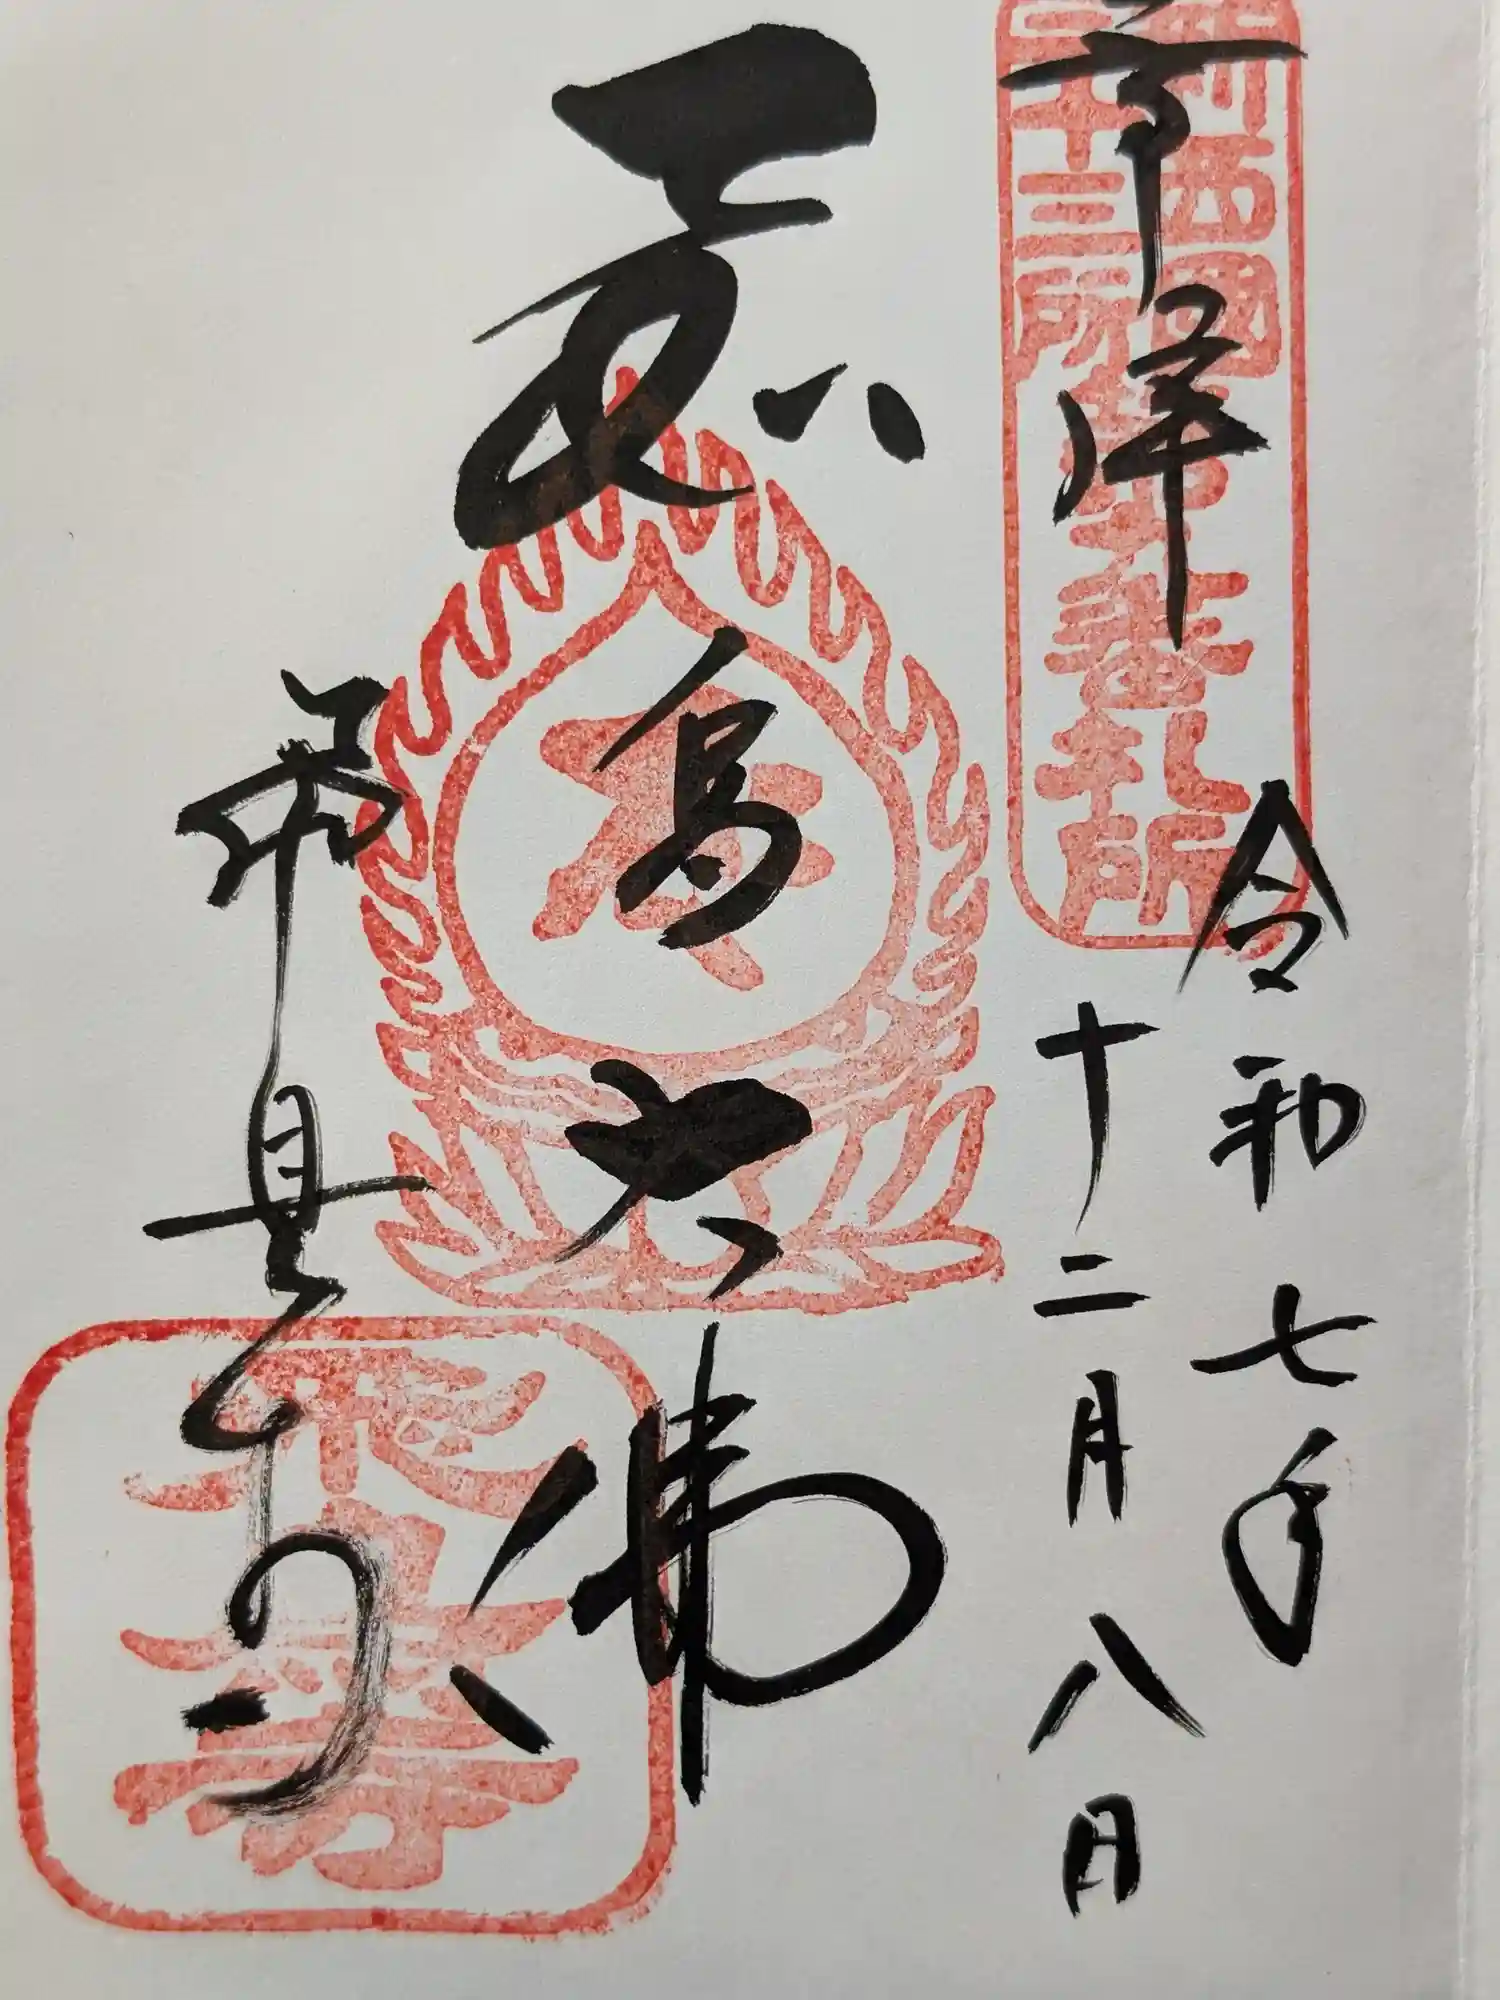 奉拝
新西國
三十三所
第九番札所
令和七年
十二月八日
飛鳥大佛
飛鳥寺